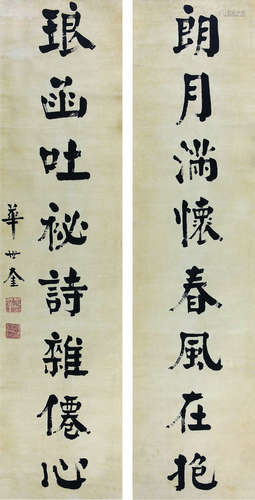 朗月滿懷春風在抱
琅函吐祕詩雜僊心
華世奎